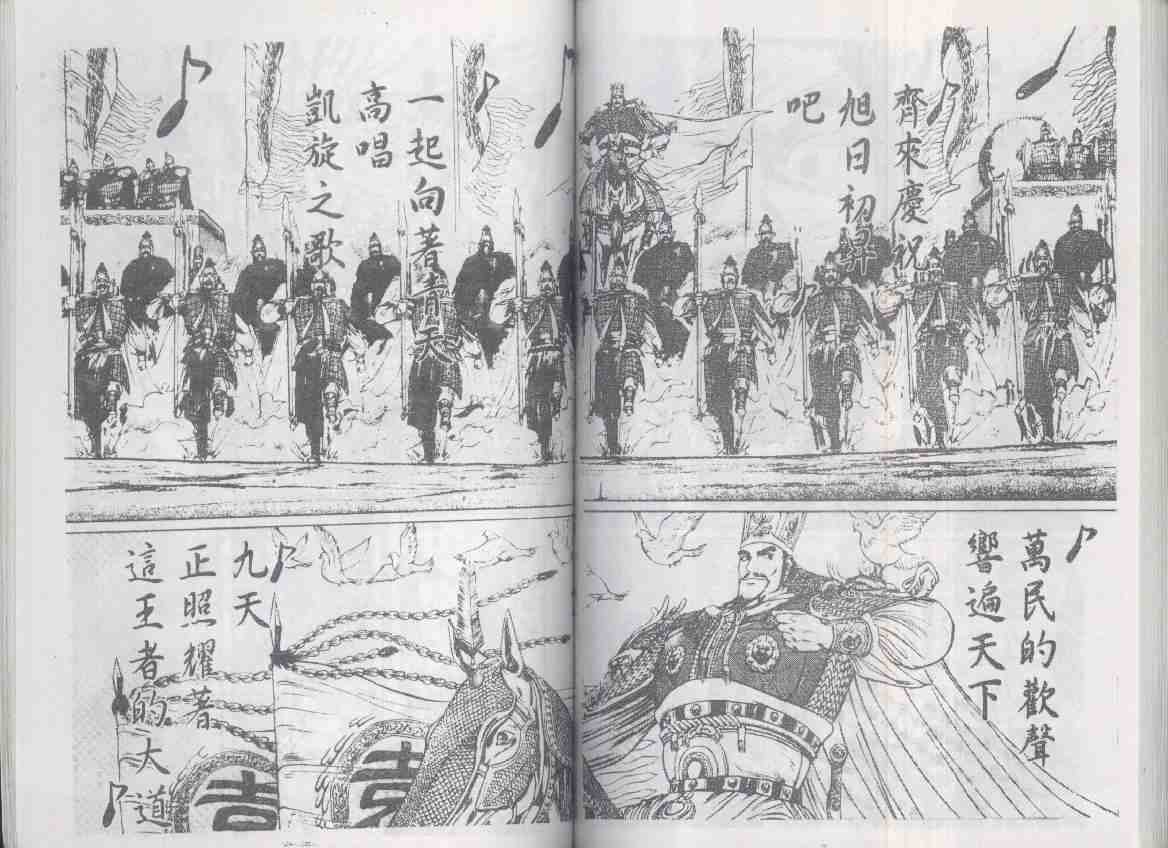 齊來慶祝
旭日初昇
吧
一起向著青天
高唱
凱旋之歌
萬民的歡聲
響遍天下
九天
正照耀著
這王者的大道
袁